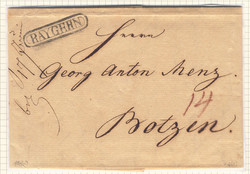 RAYGERN
Herrn
Georg Anton Menz.
14
Botzen.